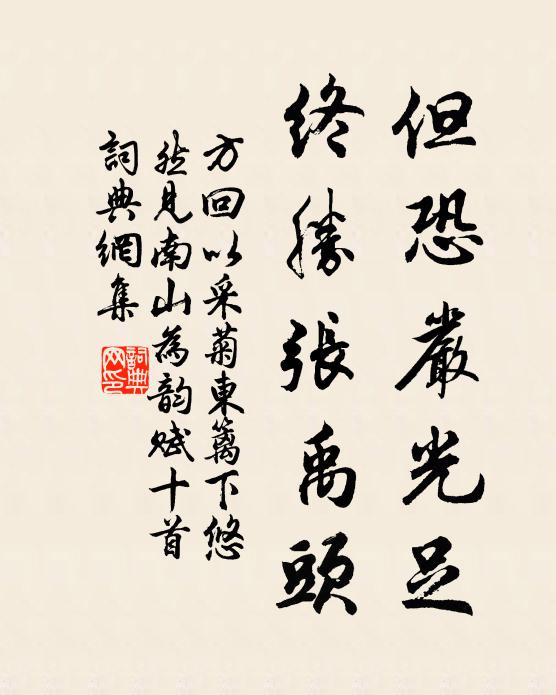 但恐嚴光足
終勝張禹頭
方回以采菊東籬下悠
然見南山為韵賦十首
詞典網集
詞典網印